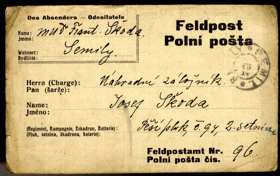 Des Absenders - Odesilatele
Feldpost
Polní pošta
Name:
Jméno:
MUDr Frant. Škoda
Wohnort:
Bydliště:
Semily.
Herrn (Charge):
Pan (šarže):
Náhradní záložník
Name:
Jméno:
Josef Škoda
Pěší pluk č. 94 2. setnina
(Regiment, Kompagnie, Eskadron, Batterie):
(Pluk, setnina, škadrona, baterie):
Feldpostamt Nr.
Polní pošta čís.
96